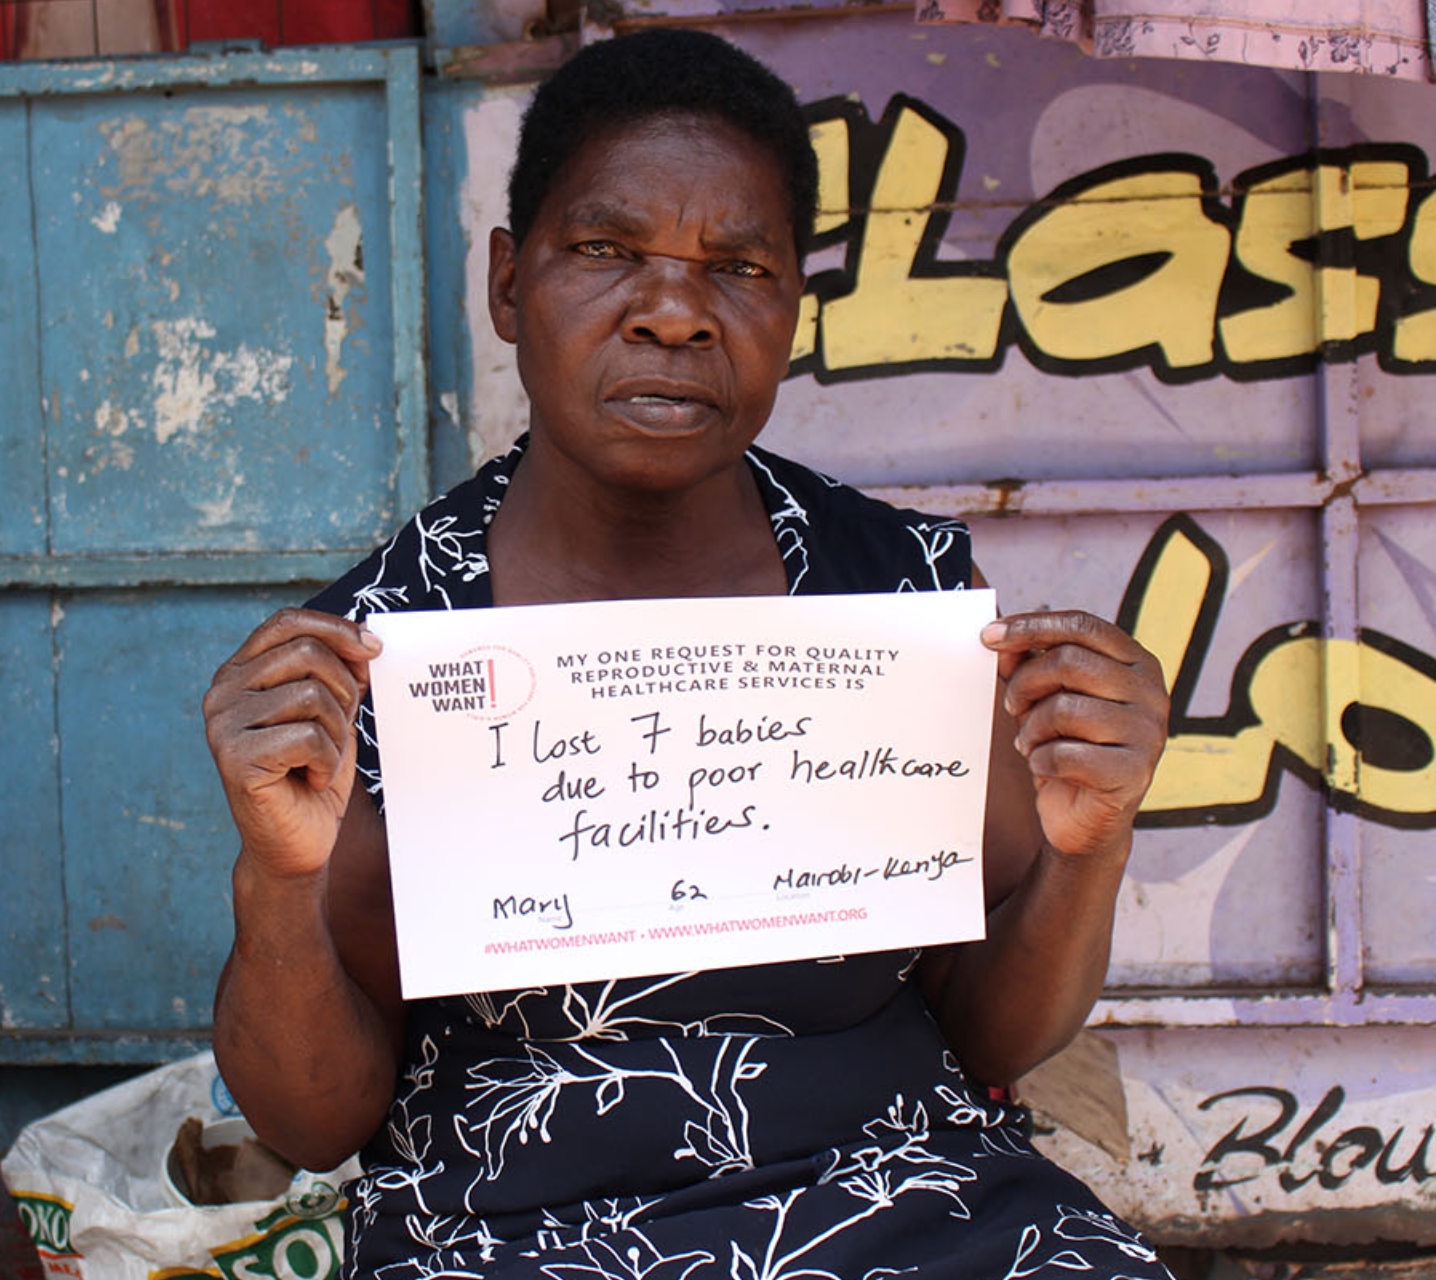 Lass
Lo
Blow
WHAT
WOMEN
WANT!
MY ONE REQUEST FOR QUALITY
REPRODUCTIVE & MATERNAL
HEALTHCARE SERVICES IS
I lost 7 babies
due to poor healthcare
facilities.
Mary 62 Nairobi-Kenya
Name Age Location
#WHATWOMENWANT • WWW.WHATWOMENWANT.ORG
OKO
SO